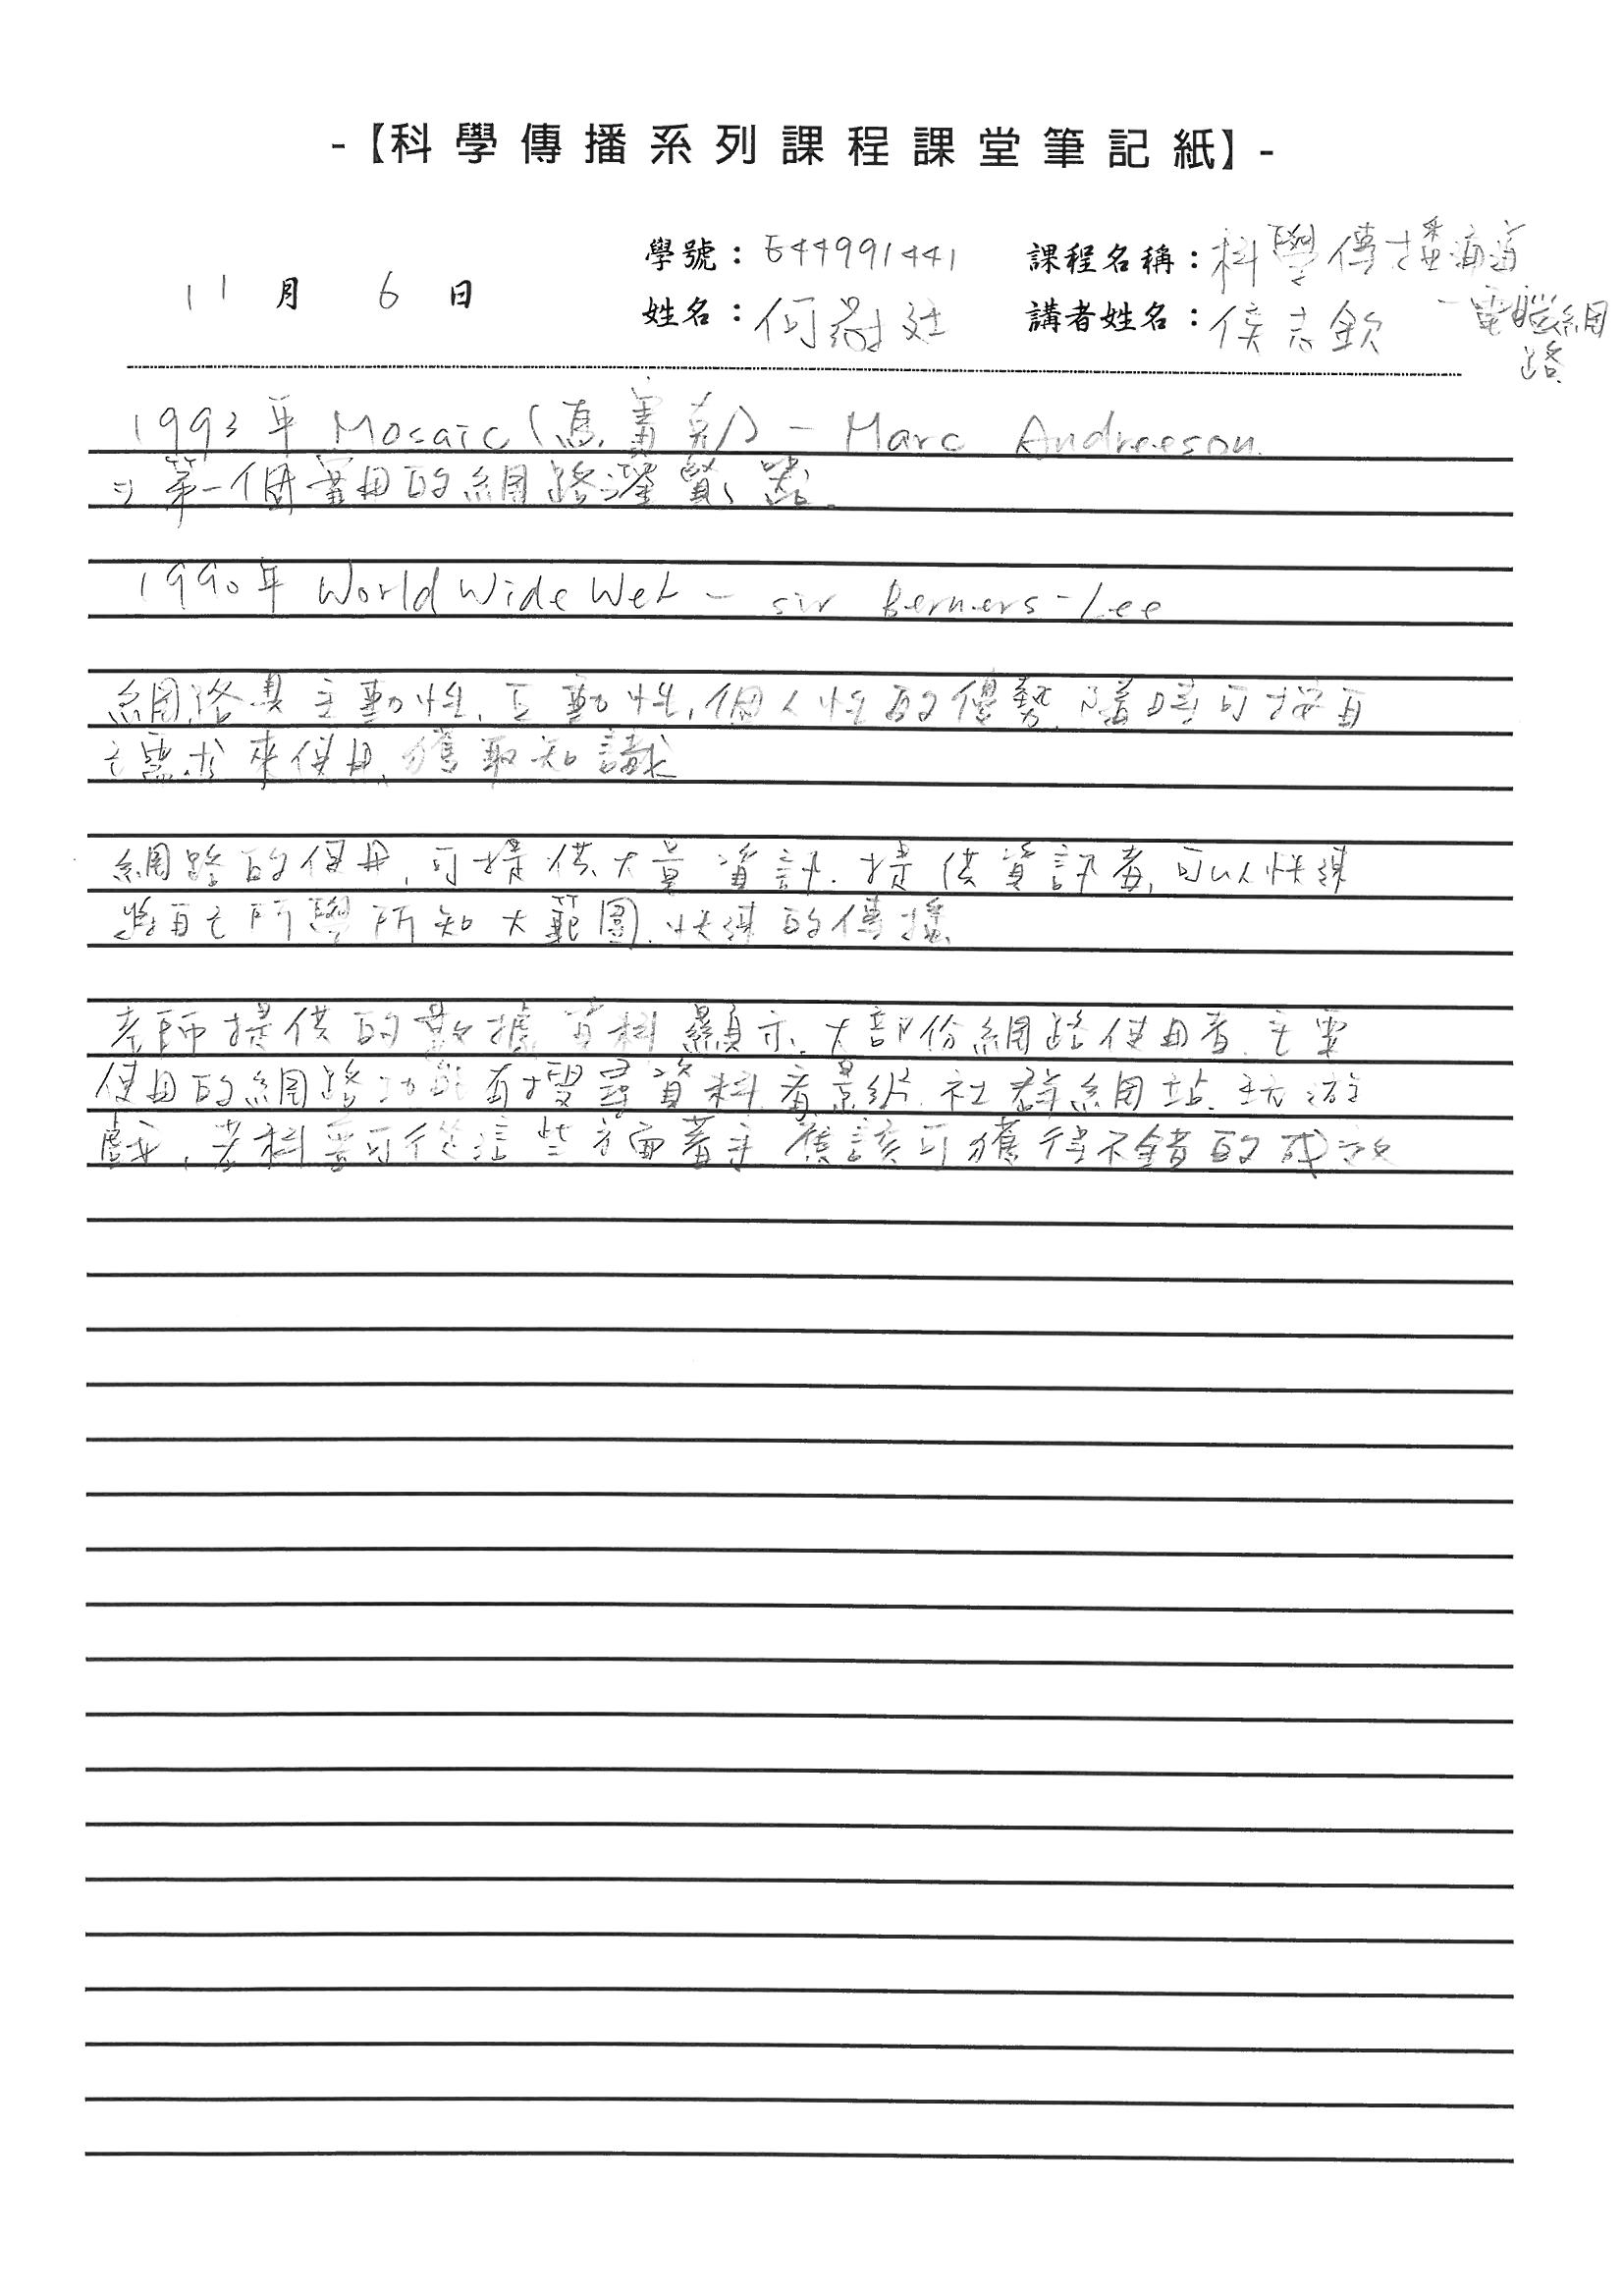 -【科學傳播系列課程課堂筆記紙】-
學號：E44991441 課程名稱：科學傳播演道
11月6日
姓名：何尉廷 講者姓名：侯志欽 -電腦網
路
1993年 Mosaic(馬賽克) - Marc Andreeson.
⇒第一個實用的網路瀏覽器.
1990年 World Wide Web - sir Berners-Lee
網路具主動性、互動性、個人性的優勢、隨時可按自
己需求來使用、獲取知識
網路的使用，可提供大量資訊．提供資訊者，可以快速
將自己所學所知大範圍、快速的傳播
老師提供的數據資料顯示、大部份網路使用者、主要
使用的網路功能有搜尋資料、看影片、社群網站、玩遊
戲，若科普可從這些方面著手、應該可獲得不錯的成效